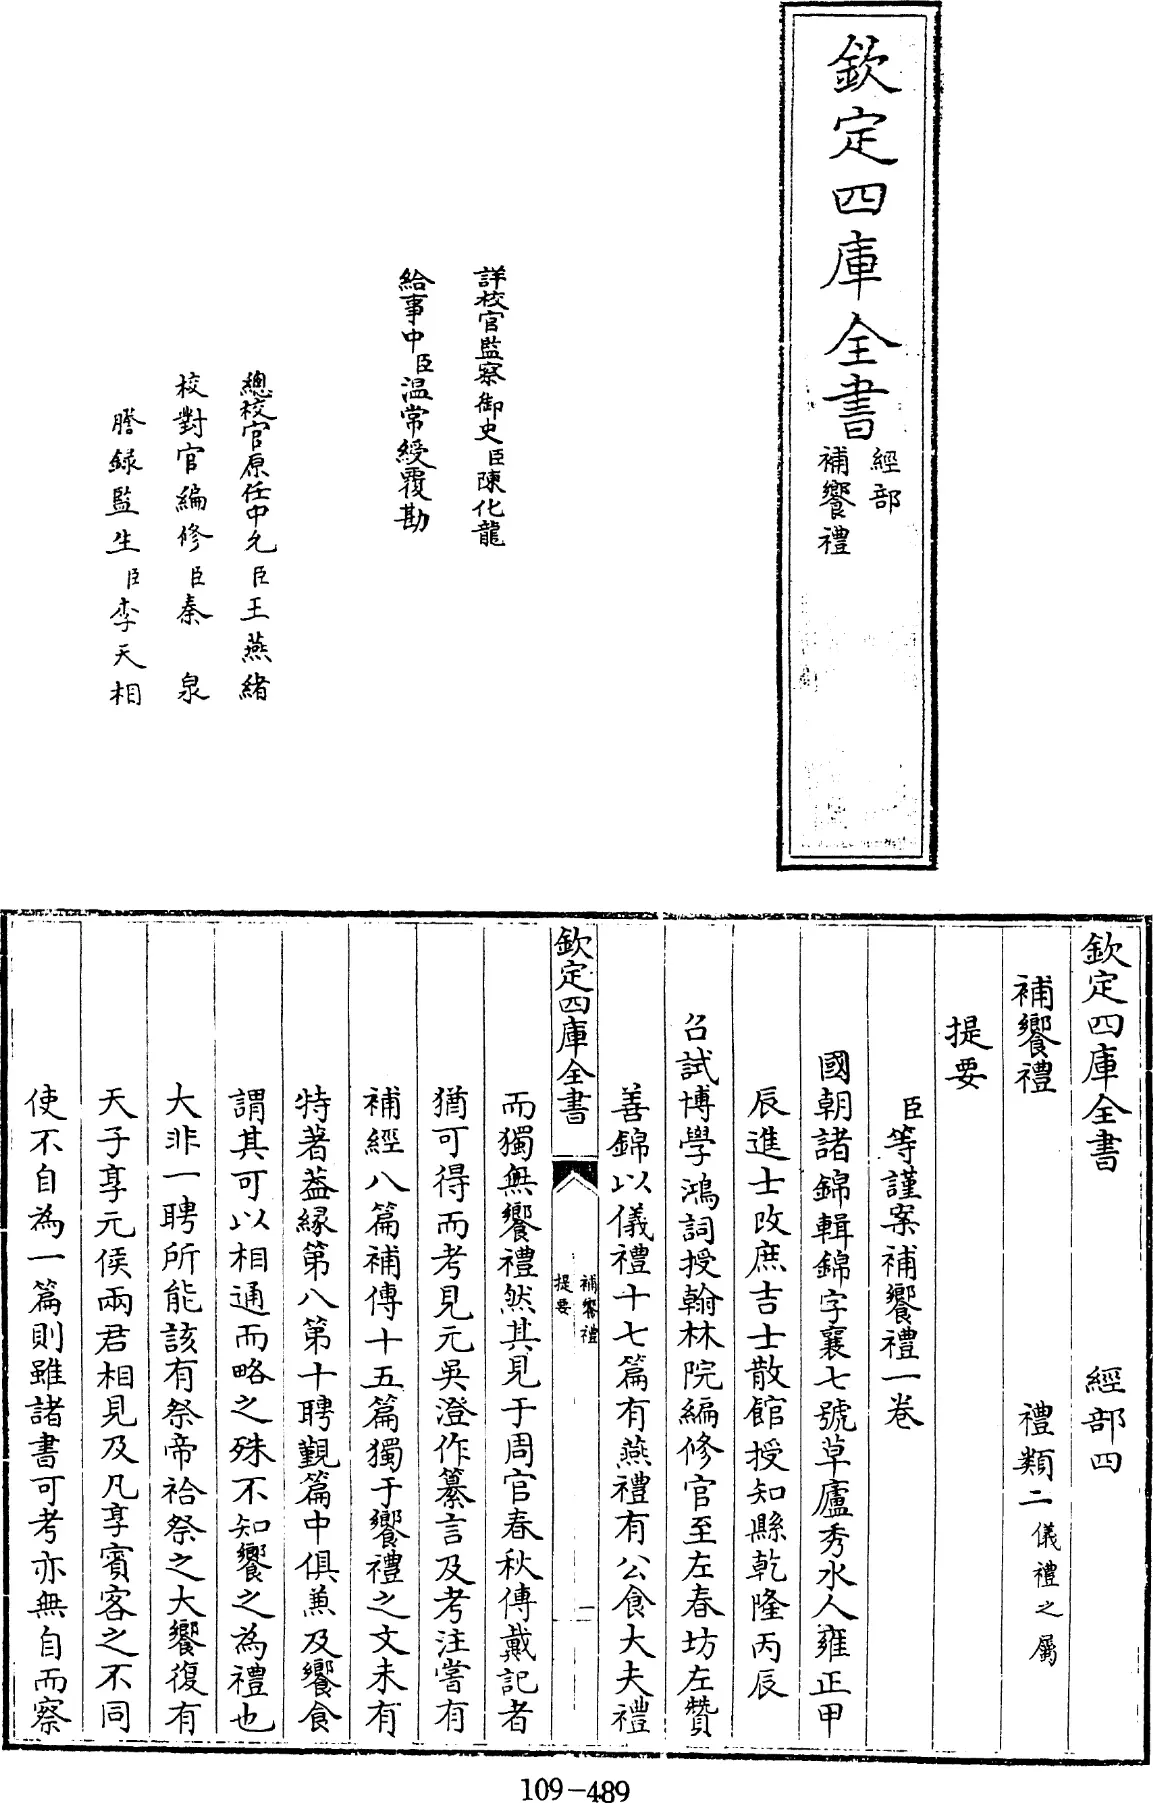 欽定四庫全書
經部
補饗禮
詳校官監察御史臣陳化龍
給事中臣温常綬覆勘
總校官原任中允臣王燕緒
校對官編修臣秦泉
謄録監生臣李天相
欽定四庫全書 經部四
補饗禮 禮類二儀禮之屬
提要
臣等謹案補饗禮一巻
國朝諸錦輯錦字襄七號草廬秀水人雍正甲
辰進士改庶吉士散館授知縣乾隆丙辰
召試博學鴻詞授翰林院編修官至左春坊左贊
善錦以儀禮十七篇有燕禮有公食大夫禮
欽定四庫全書
補饗禮
提要
一
而獨無饗禮然其見于周官春秋傳戴記者
猶可得而考見元吳澄作纂言及考注嘗有
補經八篇補傳十五篇獨于饗禮之文未有
特著葢縁第八第十聘覲篇中俱兼及饗食
謂其可以相通而略之殊不知饗之為禮也
大非一聘所能該有祭帝祫祭之大饗復有
天子享元侯兩君相見及凡享賓客之不同
使不自為一篇則雖諸書可考亦無自而察
109-489